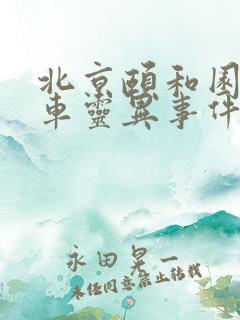 北京頤和園
車靈異事件
永田晃一
未经同意禁止转载